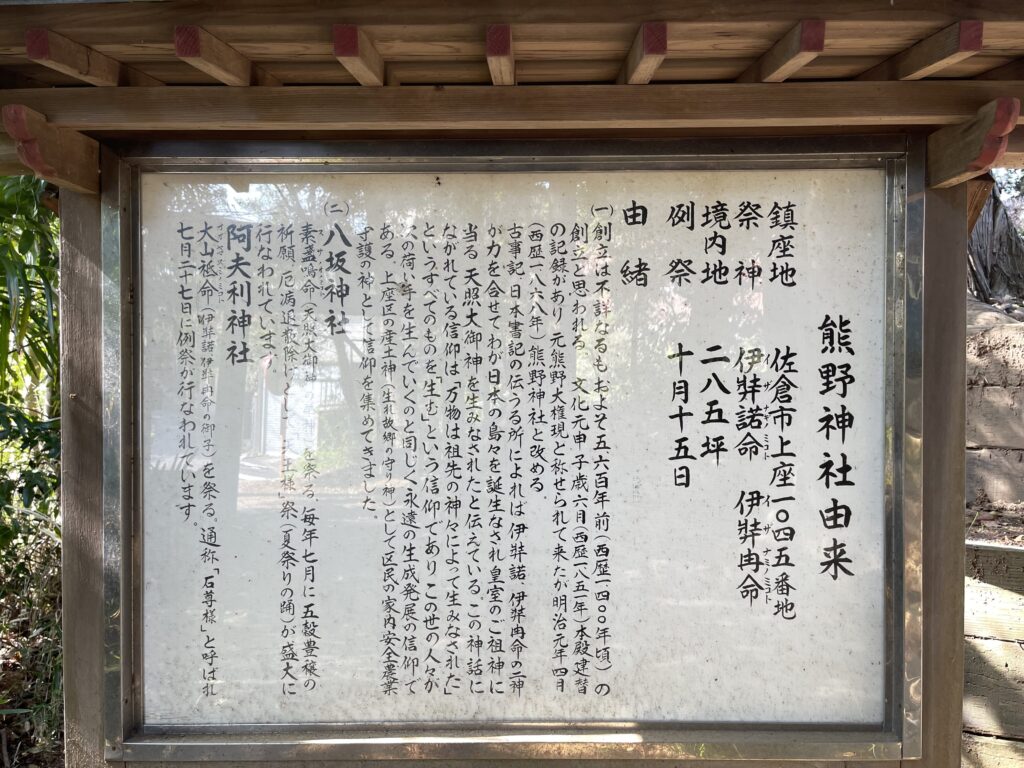 熊野神社由来
鎮座地 佐倉市上座一〇四五番地
祭神 伊弉諾命 伊弉冉命
イザナギノミコト イザナミノミコト
境内地 二八五坪
例祭 十月十五日
由緒
(一)創立は不詳なるもおよそ五六百年前(西歴一四〇〇年頃)の
創立と思われる 文化元申子歳六月(西歴一八五一年)本殿建替
の記録があり 元熊野大権現と称せられて来たが明治元年四月
(西歴一八六八年)熊野神社と改める
古事記、日本書記の伝うる所によれば 伊弉諾、伊弉冉命の二神
が力を合せてわが日本の島々を誕生なされ皇室のご祖神に
当る 天照大御神を生みなされたと伝えている。この神話に
ながれている信仰は「万物は祖先の神々によって生みなされた」
というすべてのものを「生む」という信仰であり この世の人々が
次の荷い手を生んでいくのと同じく永遠の生成発展の信仰で
ある 上座区の産土神(生れ故郷の守り神)として区民の家内安全農業
守護の神として信仰を集めてきました。
(二)八坂神社
素盞嗚命(天照大御神 を祭る。毎年七月に五穀豊穣の
祈願、厄病退散除 祭(夏祭りの踊)が盛大に
行なわれています。
阿夫利神社
大山祗命(伊弉諾伊弉冉命の御子)を祭る。通称「石尊様」と呼ばれ
七月二十七日に例祭が行なわれています。